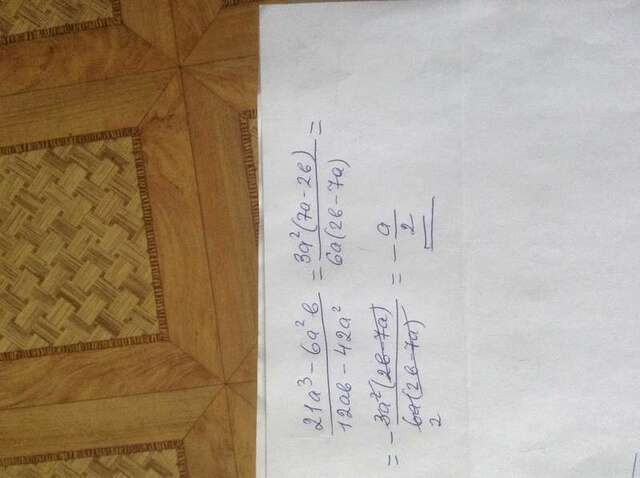 (21a³ - 6a²b)/(12ab - 42a²) = (3a²(7a - 2b))/(6a(2b - 7a)) =
= - (3a²(2b - 7a))/(6a(2b - 7a)) = - a/2
2